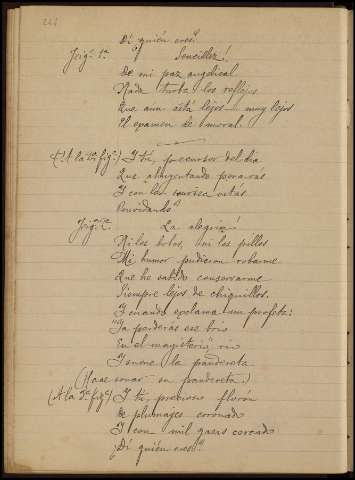 Di quién eres?
Jrig.ª 1.ª ¡Sencillez!
De mi paz angelical
Nada turba los reflejos
Que aun está lejos... muy lejos
El examen de moral.
(A la 2ª fig.ª) I tú, precursor del día
Que ahuyentando penarás
I con la sonrisa estás
Convidando?
Jrig.ª 2.ª La alegría!
Ni los bobos, ni los pillos
Mi humor pudieron robarme
Que he sabido conservarme
Siempre lejos de chiquillos.
I cuando exclama un profeta:
"Ya perderás ese brio
En el magisterio", río
I sueno la pandereta
(Hace sonar su pandereta.)
(A la 3ª fig.ª) I tú, precioso florón
De plumajes coronado
I con mil gasas cercado
¿Di quién eres?